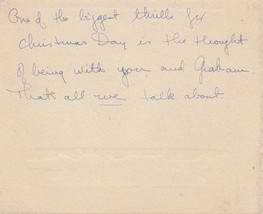 One of the biggest thrills for
Christmas Day is the thought
of being with you and Graham.
Thats all we talk about.